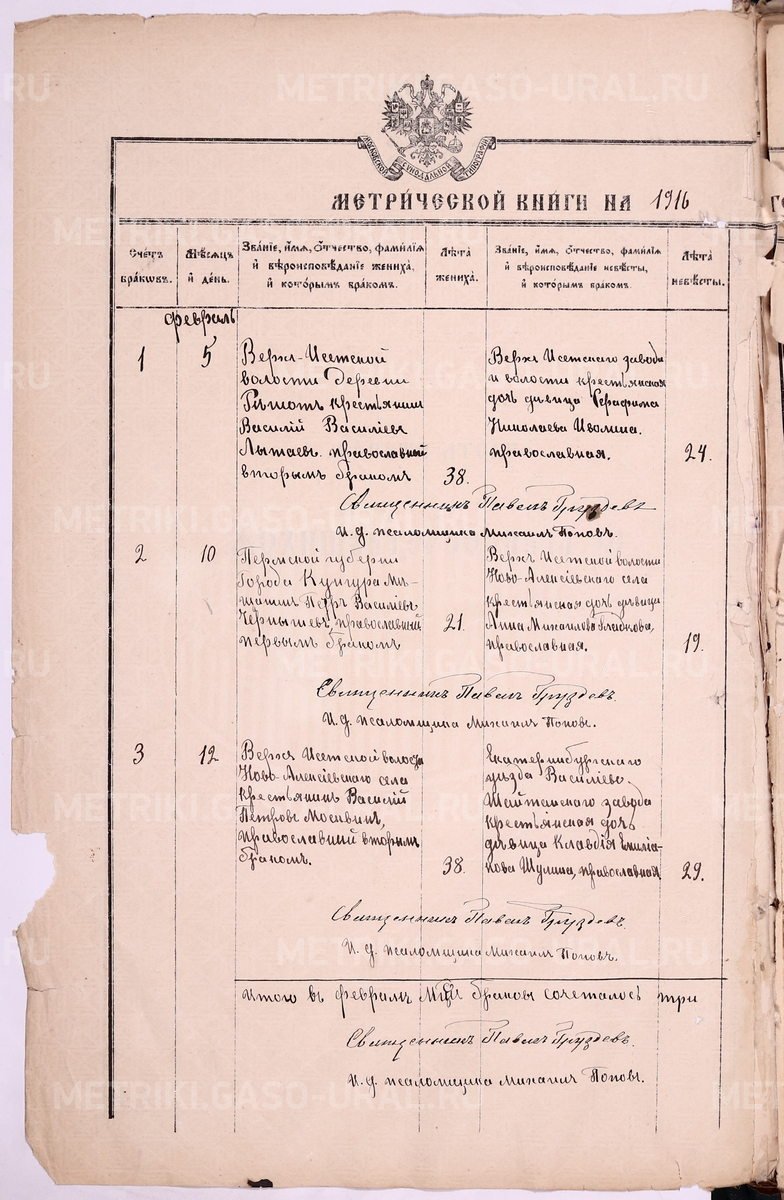 METRIKI.GASO-URAL.RU
МОСКОВСКОЙ СѴНОДАЛЬНОЙ ТИПОГРАФІИ
МЕТРИЧЕСКОЙ КНИГИ НА 1916
Счетъ браковъ.
Мѣсяцъ и день.
Званіе, имя, отчество, фамилія и вѣроисповѣданіе жениха, и которымъ бракомъ.
Лѣта жениха.
Званіе, имя, отчество, фамилія и вѣроисповѣданіе невѣсты, и которымъ бракомъ.
Лѣта невѣсты.
Февраль
1
5
Верхъ-Исетской
волости деревни
крестьянинъ
Василій Васильевъ
православный
вторымъ бракомъ
38.
Верхъ Исетскаго завода
и волости крестьянская
дочь дѣвица Серафима
Николаева
православная.
24.
Священникъ Павелъ Груздевъ
И. д. псаломщика Михаилъ Поповъ.
2
10
Пермской губерніи
города Кунгура мѣ-
щанинъ Петръ Васильевъ
Чернышевъ, православный
первымъ бракомъ
21.
Верхъ Исетской волости
Ново-Алексіевскаго села
крестьянская дочь дѣвица
Анна Михаилова Глабкова,
православная.
19.
Священникъ Павелъ Груздевъ.
И. д. псаломщика Михаилъ Поповъ.
3
12
Верхъ Исетской волости
Ново-Алексіевскаго села
крестьянинъ Василій
Петровъ Москвинъ,
православный вторымъ
бракомъ.
38.
Екатеринбургскаго
уѣзда Васильево-
Шайтанскаго завода
крестьянская дочь
дѣвица Клавдія
Шулина, православная
29.
Священникъ Павелъ Груздевъ.
И. д. псаломщика Михаилъ Поповъ.
Итого въ февралѣ мцѣ браковъ сочеталось три
Священникъ Павелъ Груздевъ.
И. д. псаломщика Михаилъ Поповъ.